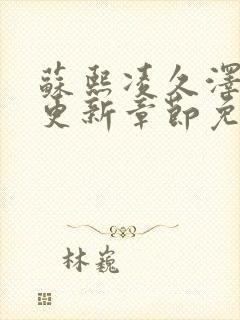 蘇熙凌久澤
更新章節免
林巍